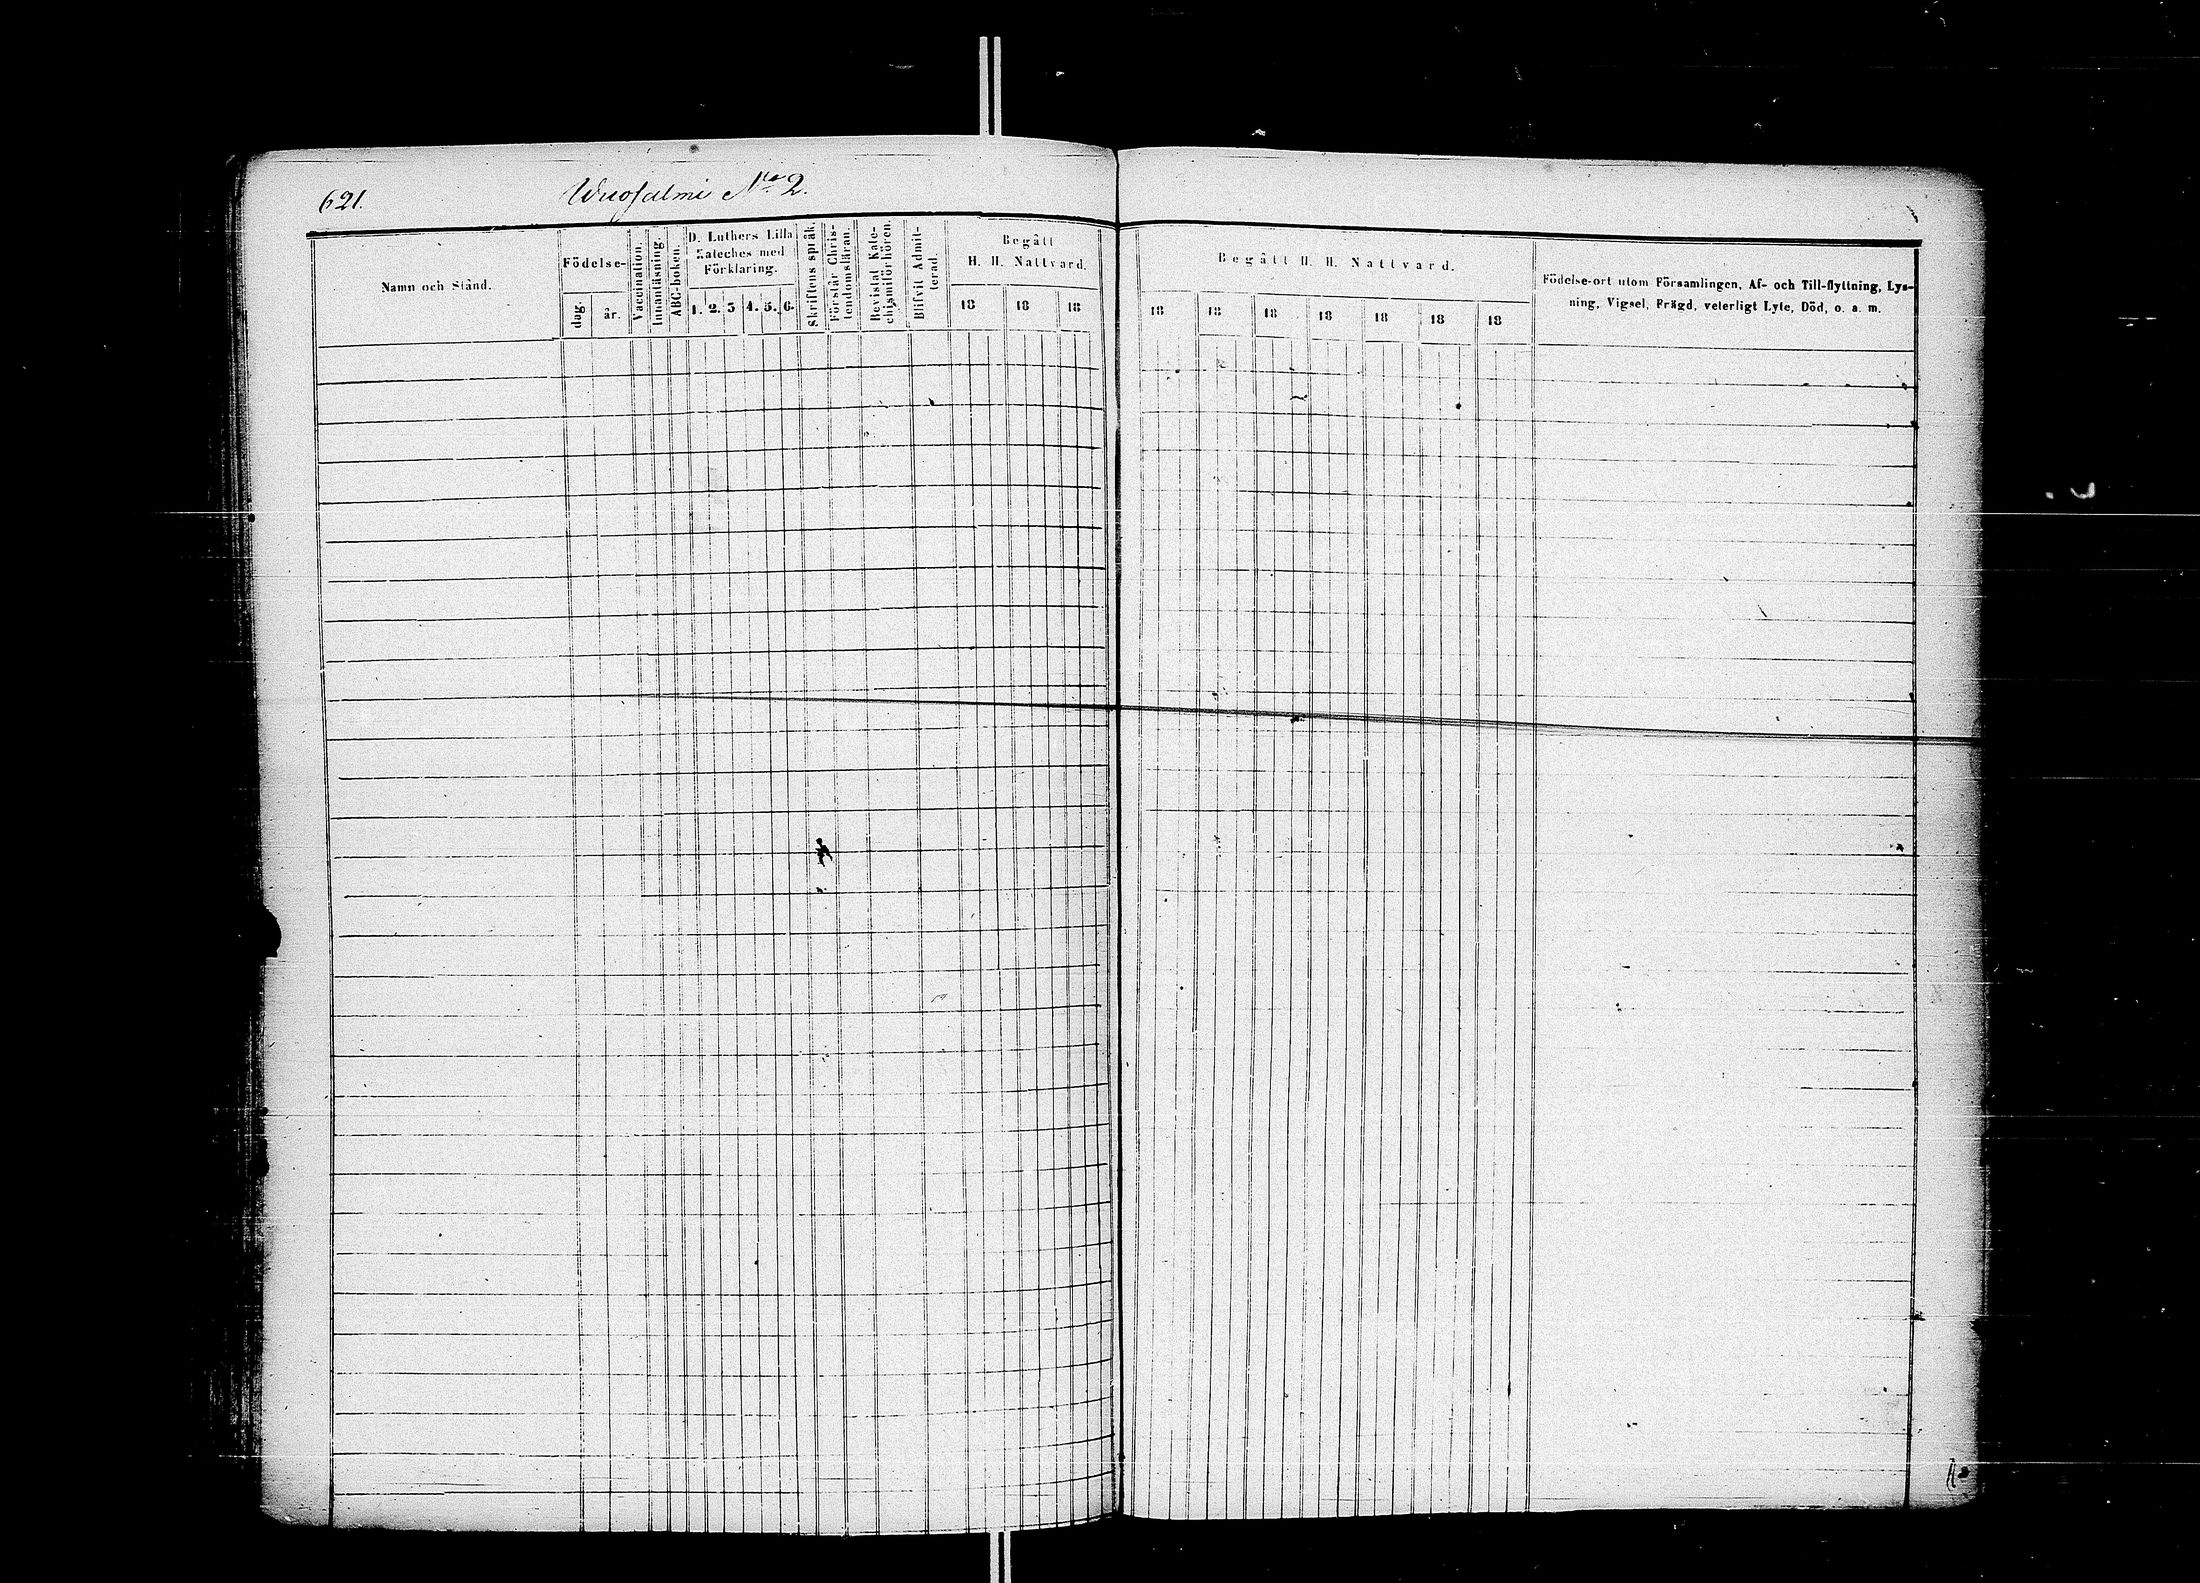 621.
Wuosalmi No 2.
Namn och Stånd.
Födelse-
dag.
år.
Vaccination.
Innanläsning.
ABC-boken.
D. Luthers Lilla
Kateches med
Förklaring.
1. 2. 3 4. 5. 6.
Skriftens språk.
Förstår Chris-
tendomsläran.
Bevistat Kate-
chismiförhören.
Blifvit Admit-
terad.
Begått
H. H. Nattvard.
18 18 18
Begått H. H. Nattvard.
18 18 18 18 18 18 18
Födelse-ort utom Församlingen, Af- och Till-flyttning, Lys-
ning, Vigsel, Frägd, veterligt Lyte, Död, o. a. m.